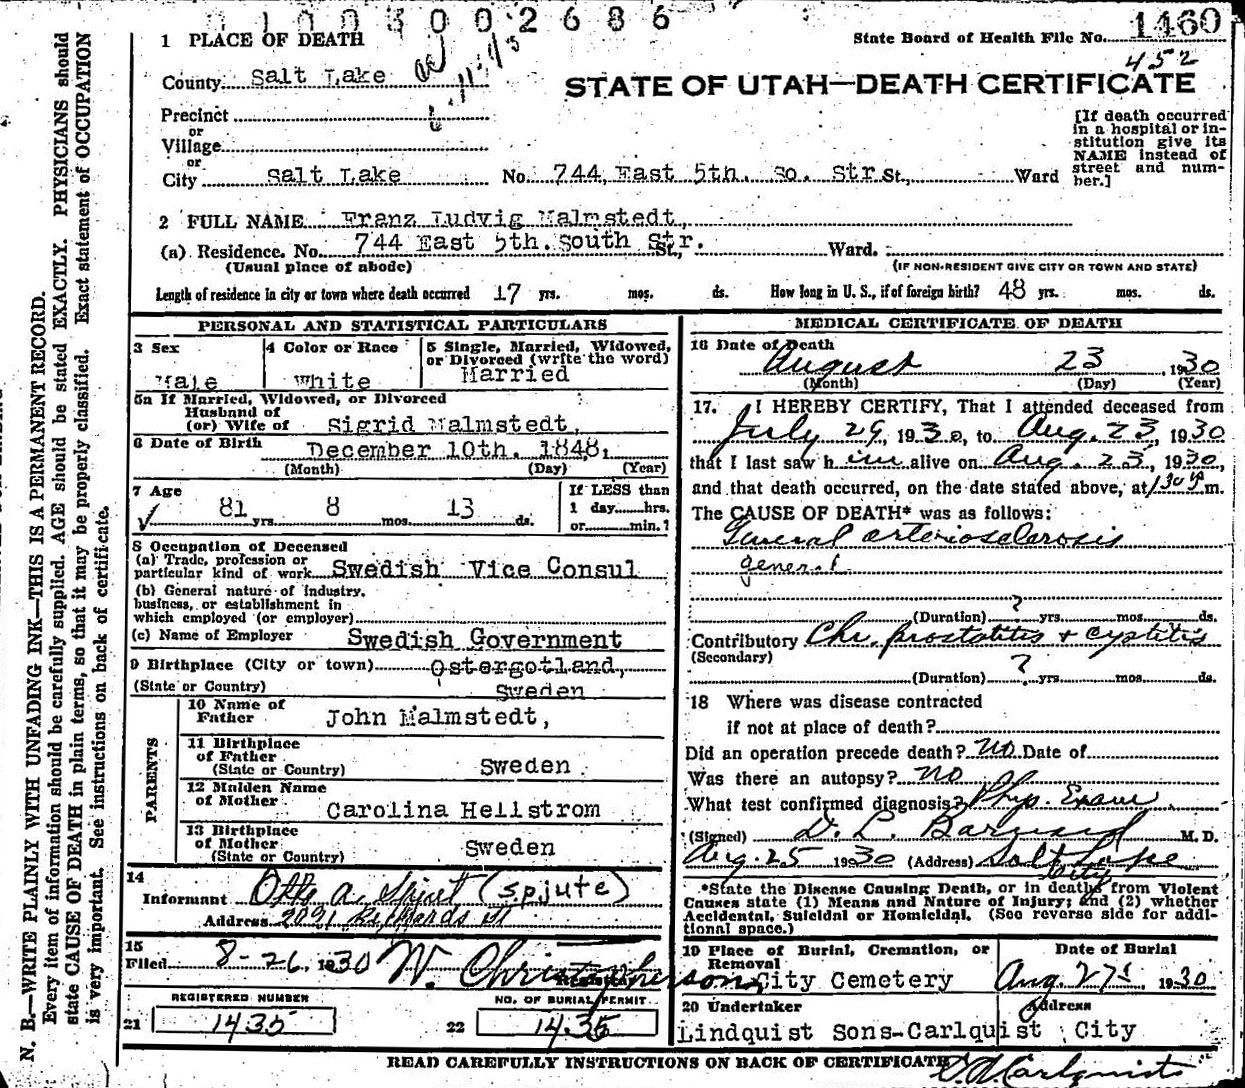 0 1 0 0 3 0 0 2 6 8 6
1460
State Board of Health File No.
452
STATE OF UTAH—DEATH CERTIFICATE
1 PLACE OF DEATH
County Salt Lake
Precinct
or
Village
or
City Salt Lake No. 744 East 5th. So. Str. St., Ward
[If death occurred
in a hospital or in-
stitution give its
NAME instead of
street and num-
ber.]
2 FULL NAME Franz Ludvig Malmstedt,
(a) Residence. No. 744 East 5th. South Str. St., Ward.
(Usual place of abode) (IF NON-RESIDENT GIVE CITY OR TOWN AND STATE)
Length of residence in city or town where death occurred 17 yrs. mos. ds. How long in U. S., if of foreign birth? 48 yrs. mos. ds.
PERSONAL AND STATISTICAL PARTICULARS
3 Sex
Male
4 Color or Race
White
5 Single, Married, Widowed,
or Divorced (write the word)
Married
5a If Married, Widowed, or Divorced
Husband of
(or) Wife of Sigrid Malmstedt,
6 Date of Birth December 10th. 1848,
(Month) (Day) (Year)
7 Age
81 yrs. 8 mos. 13 ds.
If LESS than
1 day hrs.
or min.?
8 Occupation of Deceased
(a) Trade, profession or
particular kind of work Swedish Vice Consul
(b) General nature of industry,
business, or establishment in
which employed (or employer)
(c) Name of Employer Swedish Government
9 Birthplace (City or town) Ostergotland,
(State or Country) Sweden
PARENTS
10 Name of
Father John Malmstedt,
11 Birthplace
of Father
(State or Country) Sweden
12 Maiden Name
of Mother Carolina Hellstrom
13 Birthplace
of Mother
(State or Country) Sweden
14
Informant Otto A. Spjut (Spjute)
Address 2091 Richards St
15
Filed 8-26 1930 W. Christopherson
Registrar
REGISTERED NUMBER
21 1435
NO. OF BURIAL PERMIT
22 1435
MEDICAL CERTIFICATE OF DEATH
16 Date of Death
August 23 1930
(Month) (Day) (Year)
17. I HEREBY CERTIFY, That I attended deceased from
July 29, 1930, to Aug. 23, 1930
that I last saw him alive on Aug. 23, 1930,
and that death occurred, on the date stated above, at 130 P m.
The CAUSE OF DEATH* was as follows:
General arteriosclerosis
general
?
(Duration) yrs. mos. ds.
Contributory Chr. prostatitis + cystitis
(Secondary)
?
(Duration) yrs. mos. ds.
18 Where was disease contracted
if not at place of death?
Did an operation precede death? no Date of
Was there an autopsy? no
What test confirmed diagnosis? Phys. Exam
(Signed) D. L. Barnard M. D.
Aug. 25 1930 (Address) Salt Lake
City
*State the Disease Causing Death, or in deaths from Violent
Causes state (1) Means and Nature of Injury; and (2) whether
Accidental, Suicidal or Homicidal. (See reverse side for addi-
tional space.)
19 Place of Burial, Cremation, or
Removal
City Cemetery
Date of Burial
Aug. 27th 1930
20 Undertaker Address
Lindquist Sons-Carlquist City
READ CAREFULLY INSTRUCTIONS ON BACK OF CERTIFICATE
N. B.—WRITE PLAINLY WITH UNFADING INK—THIS IS A PERMANENT RECORD.
Every item of information should be carefully supplied. AGE should be stated EXACTLY. PHYSICIANS should
state CAUSE OF DEATH in plain terms, so that it may be properly classified. Exact statement of OCCUPATION
is very important. See instructions on back of certificate.